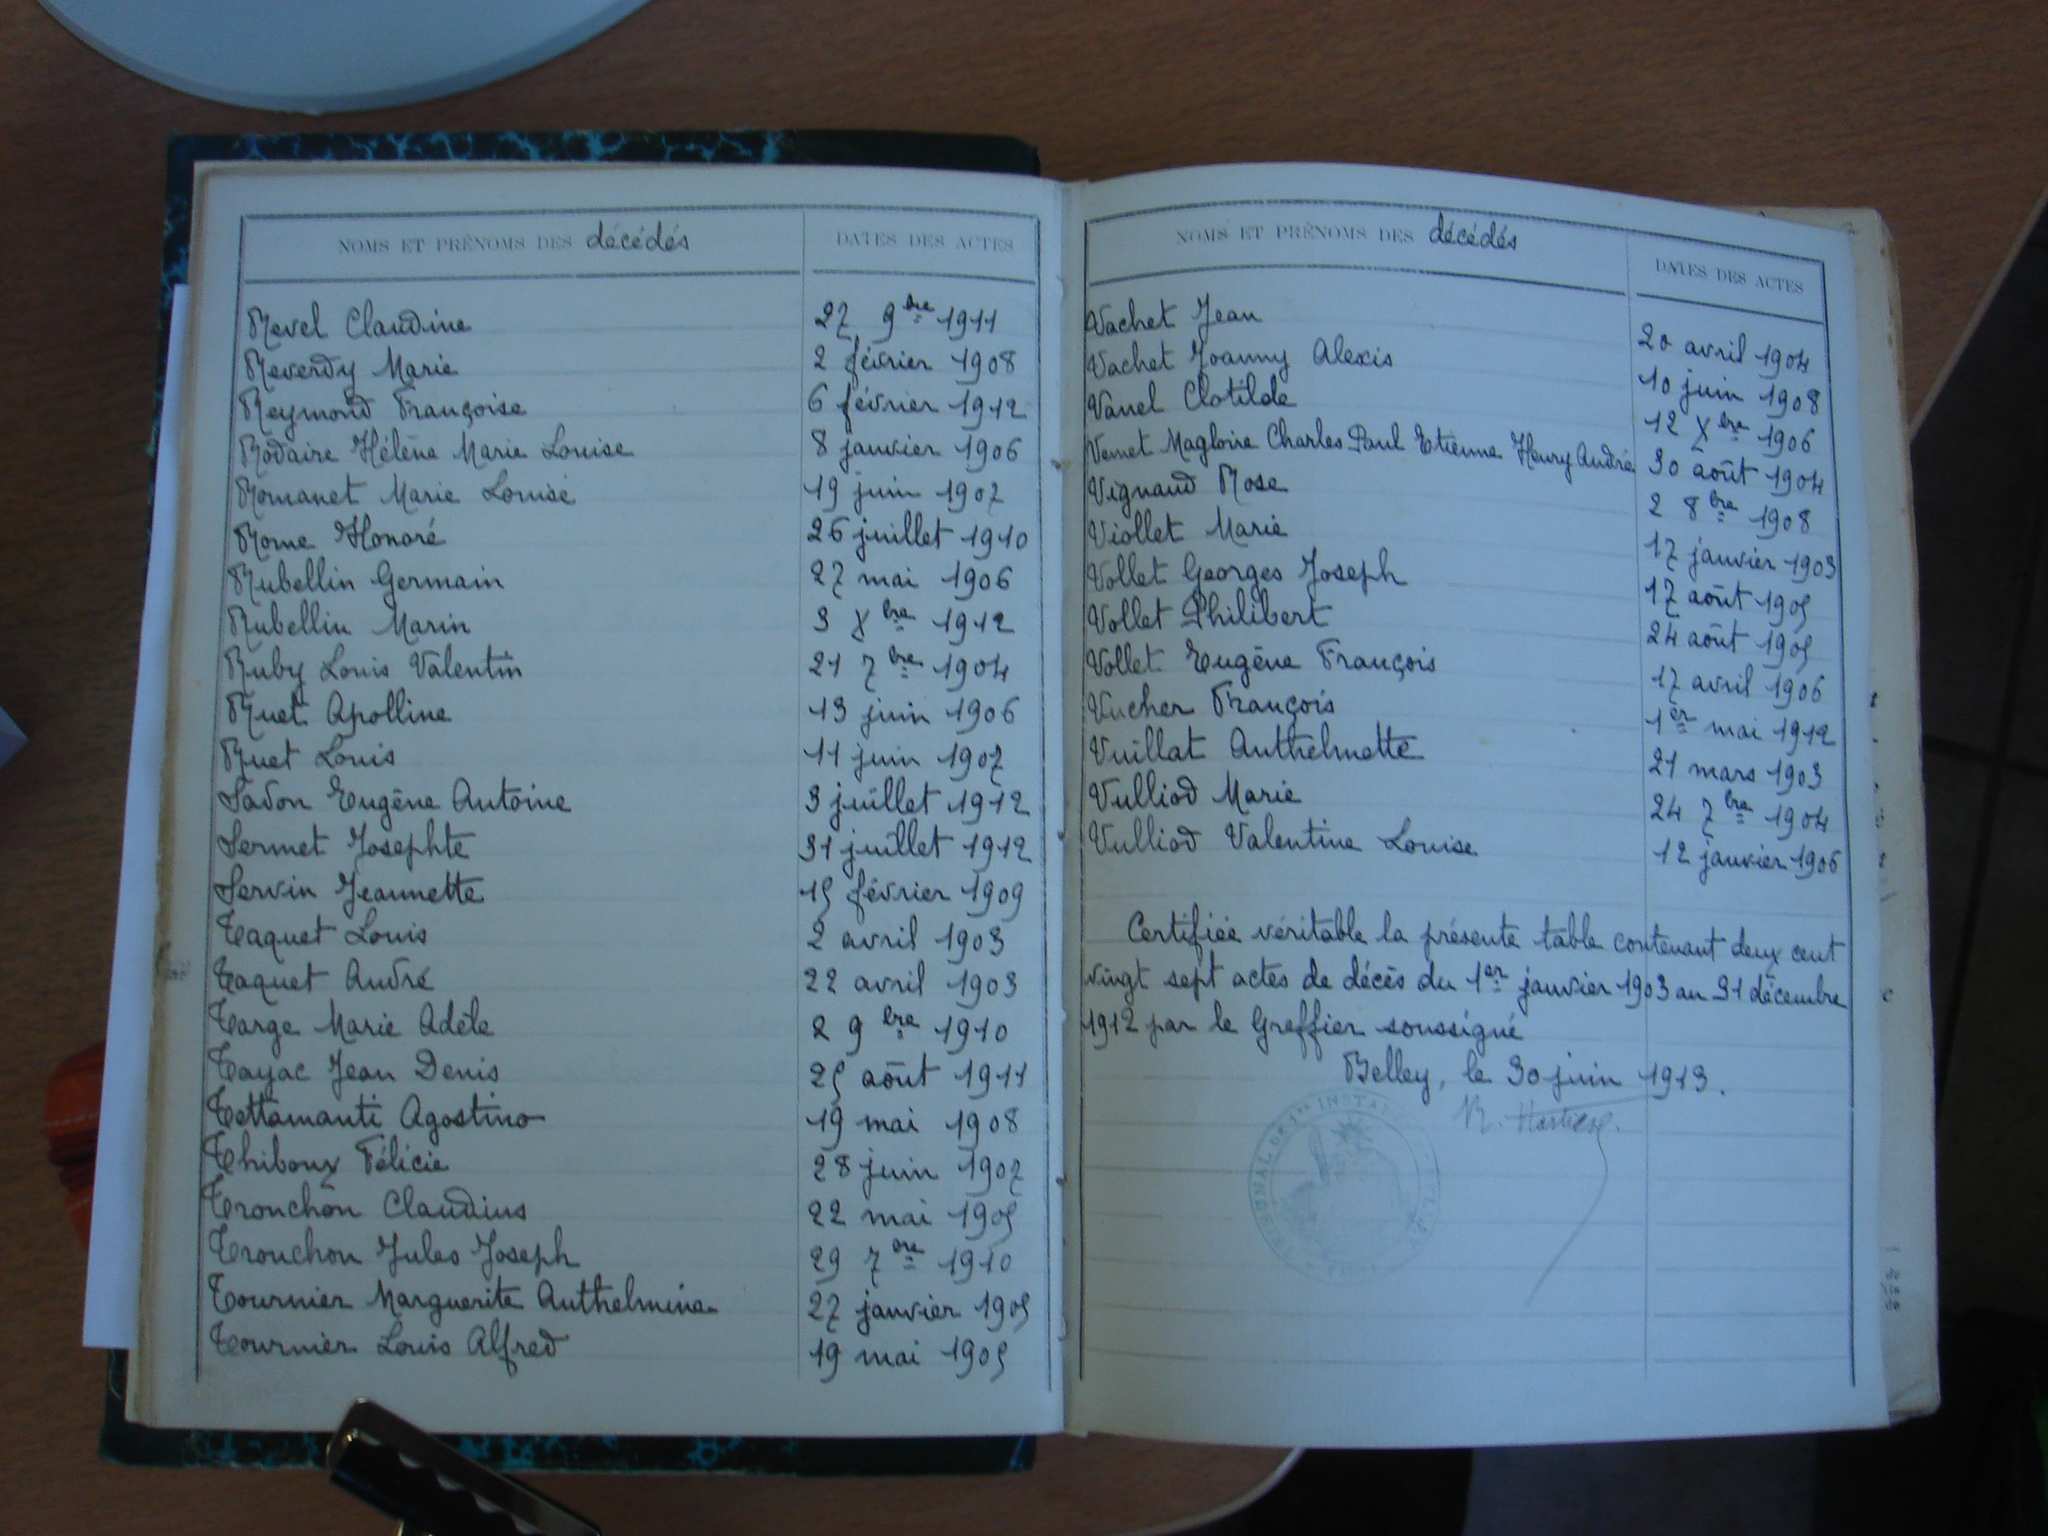 NOMS ET PRÉNOMS DES décédés DATES DES ACTES
Revel Claudine 27 9bre 1911
Reverdy Marie 2 février 1908
Reymond Françoise 6 février 1912
Rodaire Hélène Marie Louise 8 janvier 1906
Romanet Marie Louise 19 juin 1907
Rome Honoré 26 juillet 1910
Rubellin Germain 27 mai 1906
Rubellin Marin 3 Xbre 1912
Ruby Louis Valentin 21 7bre 1904
Ruet Apolline 13 juin 1906
Ruet Louis 11 juin 1907
Savon Eugène Antoine 3 juillet 1912
Sermet Josephte 31 juillet 1912
Servin Jeannette 15 février 1909
Taquet Louis 2 avril 1903
Taquet André 22 avril 1903
Targe Marie Adèle 2 9bre 1910
Tayac Jean Denis 25 août 1911
Tettamanti Agostino 19 mai 1908
Thiboux Félicie 28 juin 1907
Tronchon Claudius 22 mai 1905
Tronchon Jules Joseph 29 7bre 1910
Tournier Marguerite Anthelmine 27 janvier 1905
Tournier Louis Alfred 19 mai 1905
NOMS ET PRÉNOMS DES décédés DATES DES ACTES
Vachet Jean 20 avril 1904
Vachet Joanny Alexis 10 juin 1908
Vanel Clotilde 12 Xbre 1906
Vernet Magloire Charles Paul Etienne Henry André 30 août 1904
Vignand Rose 2 8bre 1908
Viollet Marie 17 janvier 1903
Vollet Georges Joseph 17 août 1905
Vollet Philibert 24 août 1905
Vollet Eugène François 17 avril 1906
Vucher François 1er mai 1912
Vuillat Anthelmette 21 mars 1903
Vulliod Marie 24 7bre 1904
Vulliod Valentine Louise 12 janvier 1906
Certifiée véritable la présente table contenant deux cent
vingt sept actes de décès du 1er janvier 1903 au 31 décembre
1912 par le Greffier soussigné
Belley, le 30 juin 1913.
TRIBUNAL DE 1re INSTANCE